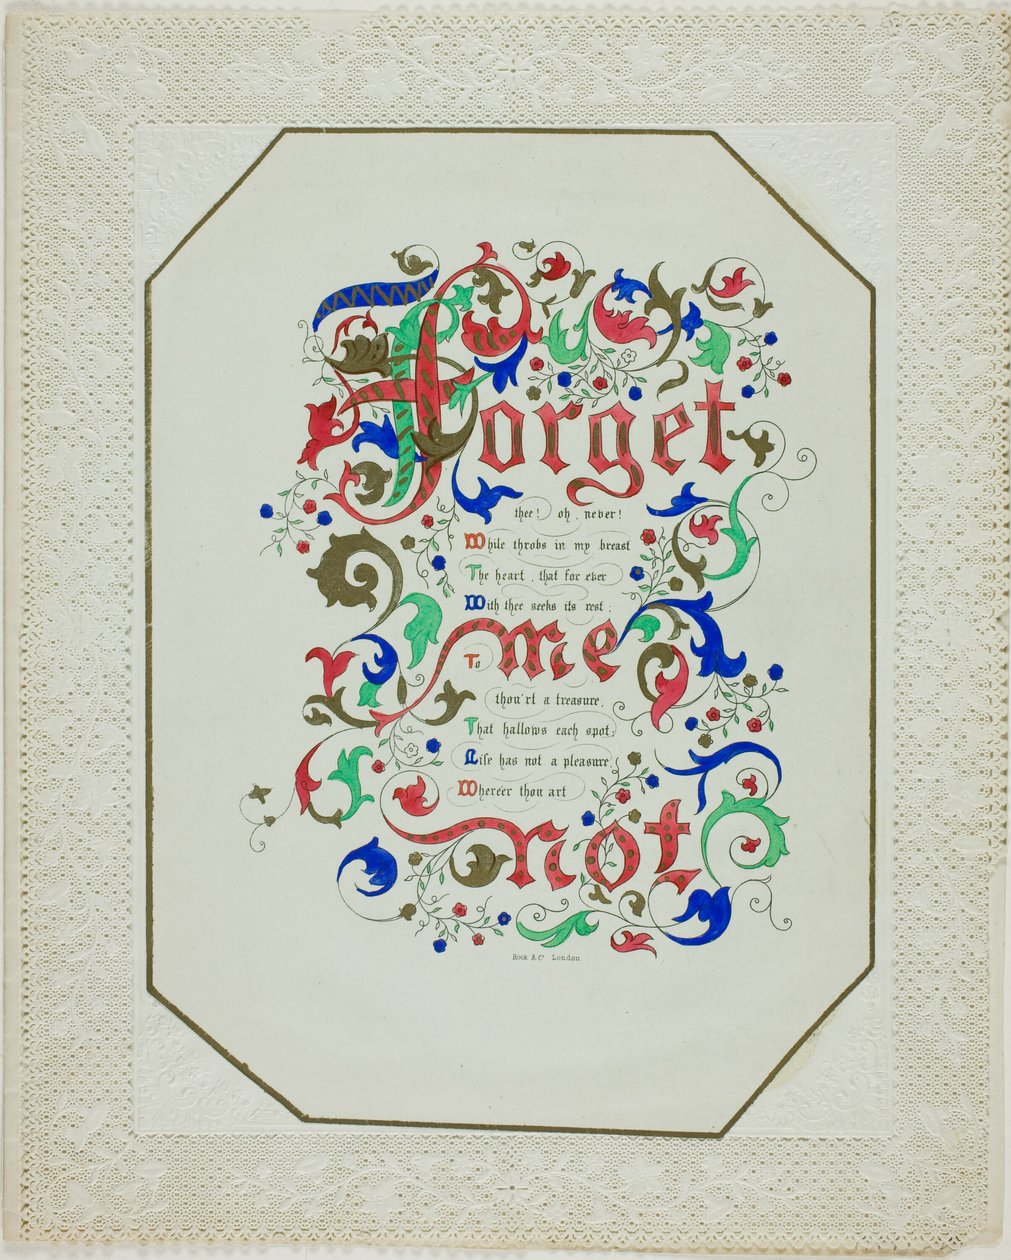 Forget
thee! oh, never!
While throbs in my breast
The heart, that for ever
With thee seeks its rest;
me
To
thou'rt a treasure,
That hallows each spot;
Life has not a pleasure,
Where'er thou art
not
Rock & Co London